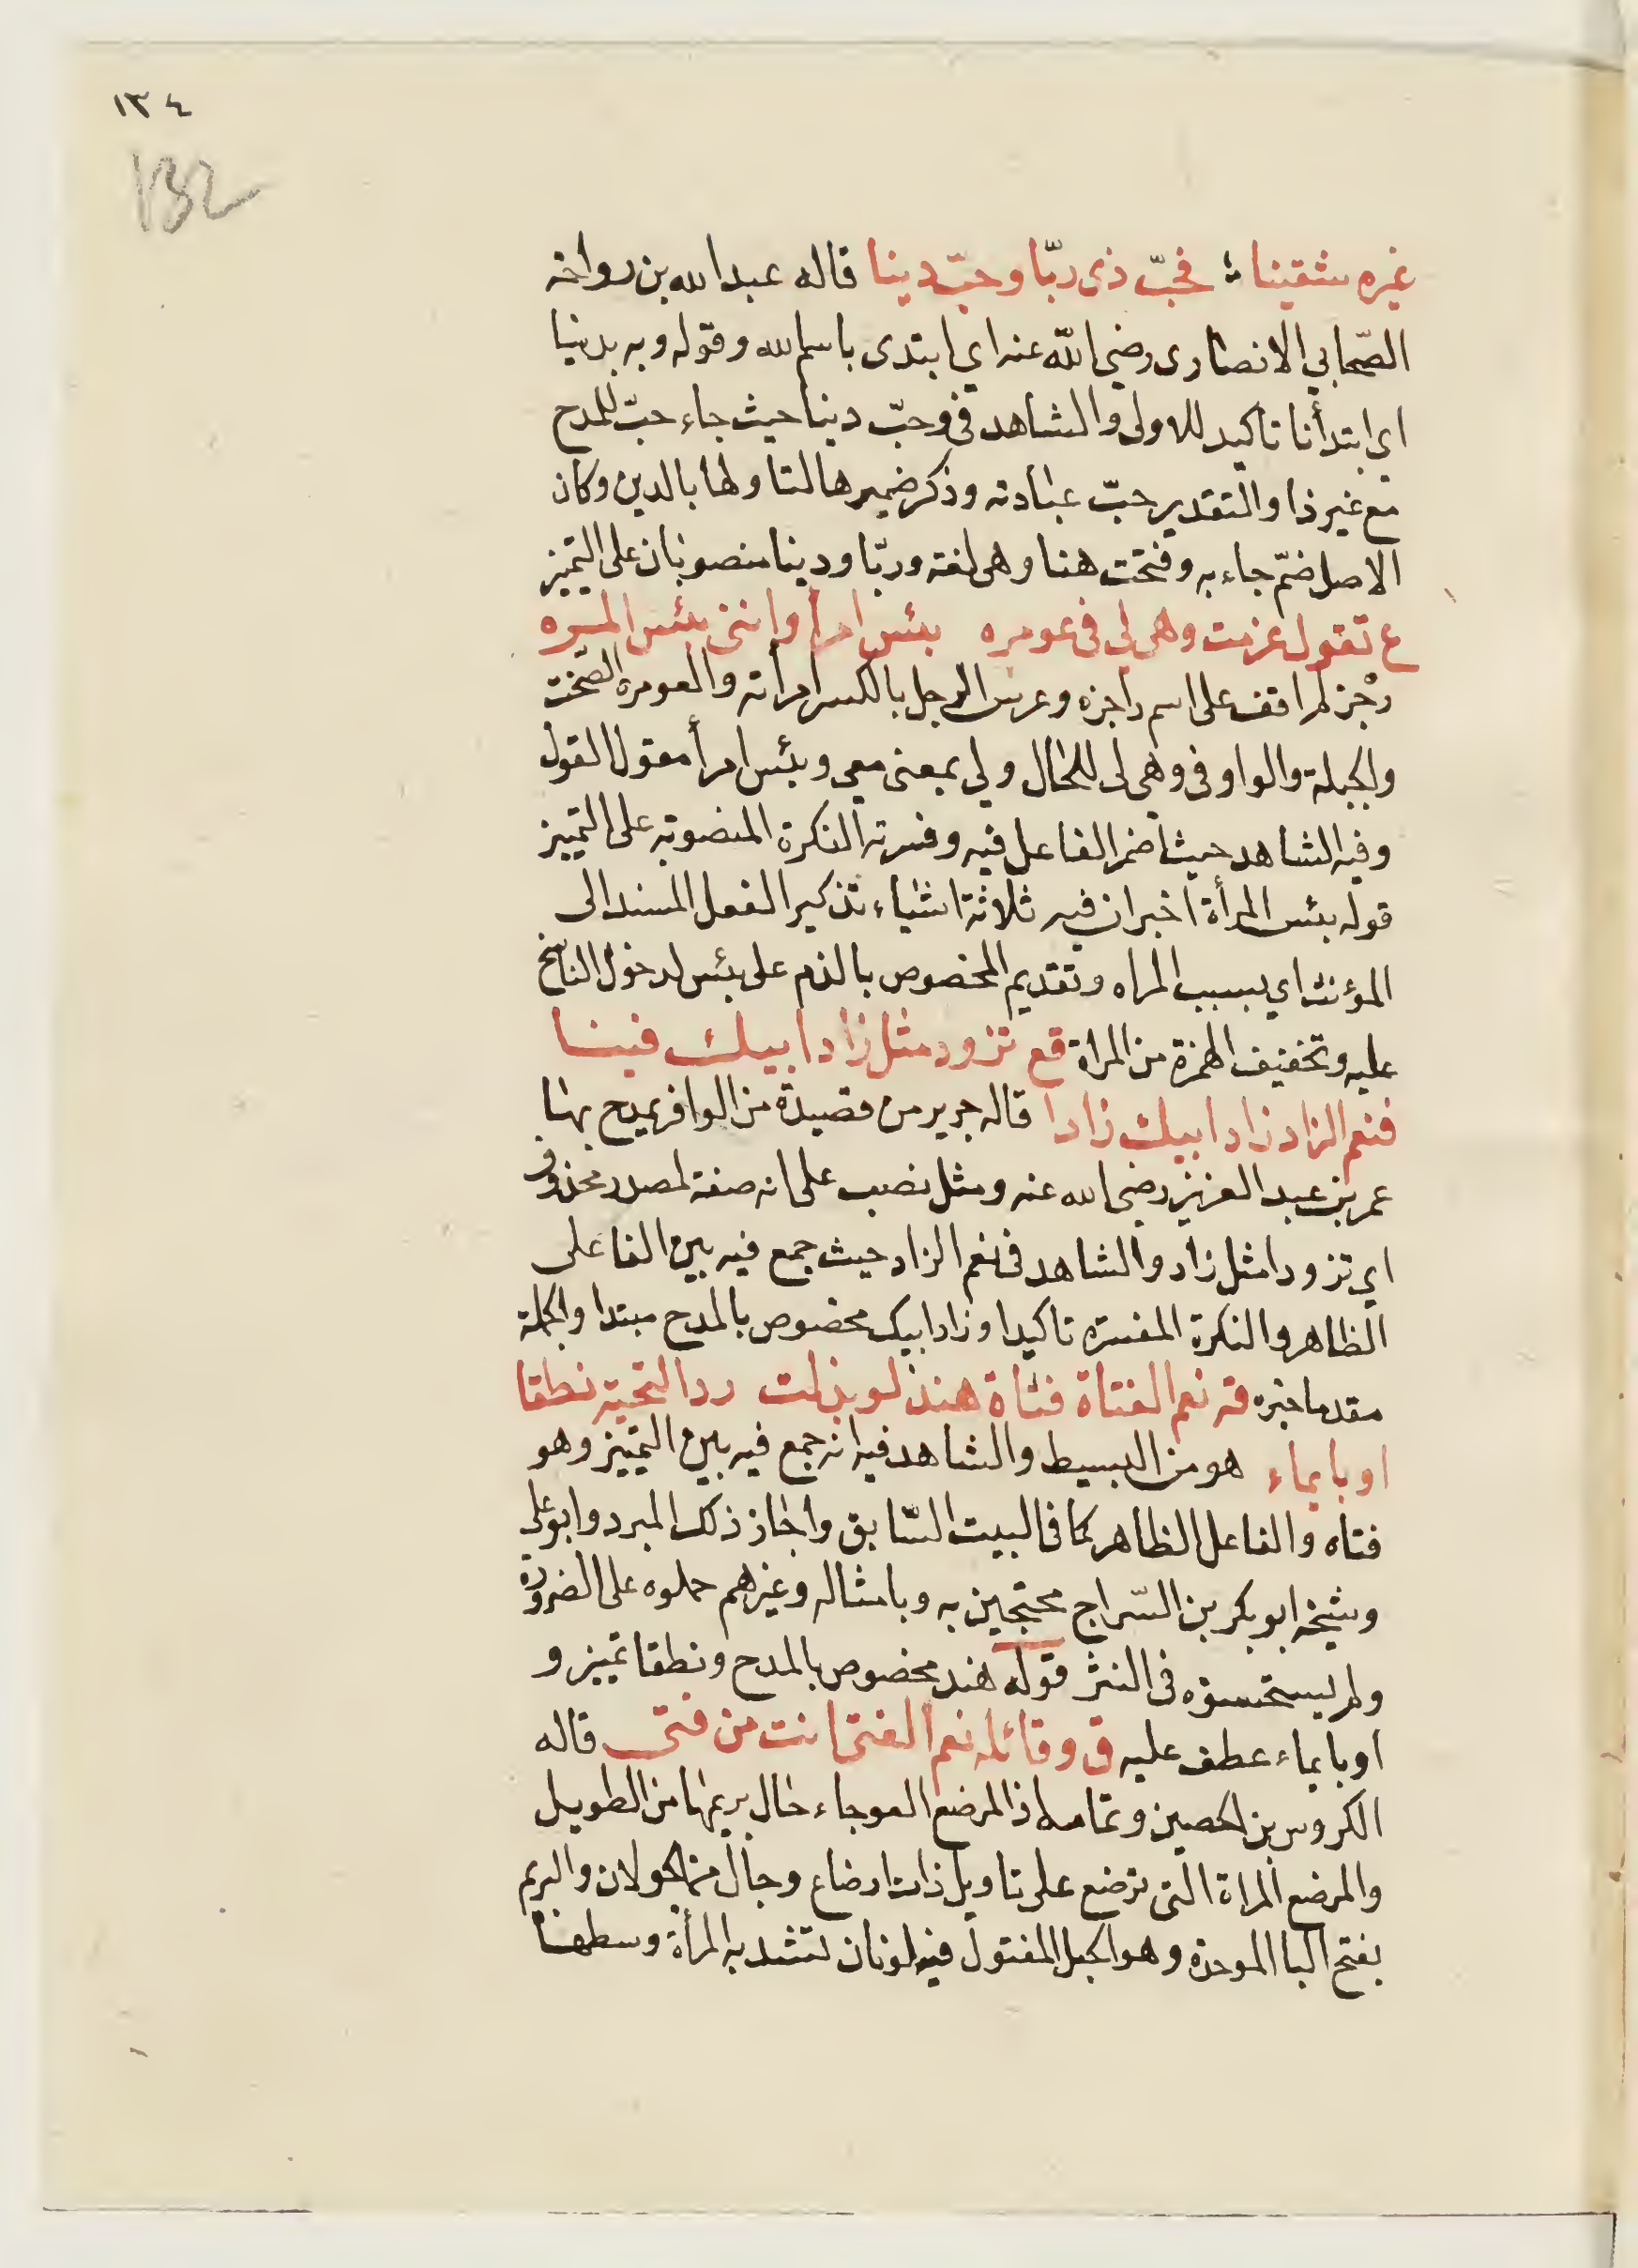 ١٣٤
132
غيره شقينا ؛ فحبّ ذى ربّا وحبّ دينا قاله عبدالله بن رواحه
الصّحابي الانصارى رضي الله عنه اي ابتدى باسم الله وقوله وبه بدينا
اي ابتدأنا تاكيد للاولى والشاهد فى وحبّ دينا حيث جاء حبّ للمدح
مع غير ذا والتقدير حبّ عبادته وذكر ضميرها لتاولها بالدين وكان
الاصل ضمّ جاء به وفتحت هنا وهى لغة وربّا ودينا منصوبان على التميز
ع تقول عرست وهى لي فى عومره بئس امرا واننى بئس المره
رجز لم اقف على اسم راجزه وعرس الرجل بالكسر امراته والعومره الصخت
والجبلة والواو فى وهى لى للحال ولي بمعنى معي وبئس امرأ مقول القول
وفيه الشاهد حيث اضمر الفاعل فيه وفسرته النكرة المنصوبه على التمييز
قوله بئس المرأة اخبران فيه ثلاثة اشياء تذكير الفعل المسند الى
المؤنث اي بسبب المراه وتقديم المخصوص بالذم على بئس لدخول الناسخ
عليه وتخفيف الهمزة من المراة قع تزود مثل زاد ابيك فينا
فنعم الزاد زاد ابيك زادا قاله جرير من قصيدة من الوافر يمدح بها
عمر بن عبد العزيز رضي الله عنه ومثل نصب على انه صفة لمصدر محذوف
اي تزودا مثل زاد والشاهد فى نعم الزاد حيث جمع فيه بين الفاعلى
الظاهر والنكرة المفسره تاكيدا وزاد ابيك مخصوص بالمدح مبتدا والجملة
مقدما خبره قه نعم الفتاة فتاة هند لو بذلت رد التحية نطقا
او بايماء هو من البسيط والشاهد فيه انه جمع فيه بين التمييز وهو
فتاه والفاعل الظاهر كما فى البيت السّابق واجاز ذلك المبرد وابو على
وشيخه ابو بكر بن السّراج محتجين به وبامثاله وغيرهم حملوه على الضرورة
ولم يستحسنوه فى النثر قوله هند مخصوص بالمدح ونطقا تمييز و
او بايماء عطف عليه ق وقائله نعم الفتى انت من فتى قاله
الكروس بن الحصين وتمامه اذا المرضع العوجاء جال بريمها من الطويل
والمرضع المراة التى ترضع على تاويل ذات ارضاع وجال من الجولان والبريم
بفتح البا الموحدة وهو الحبل المفتول فيه لونان تشد به المرأة وسطها